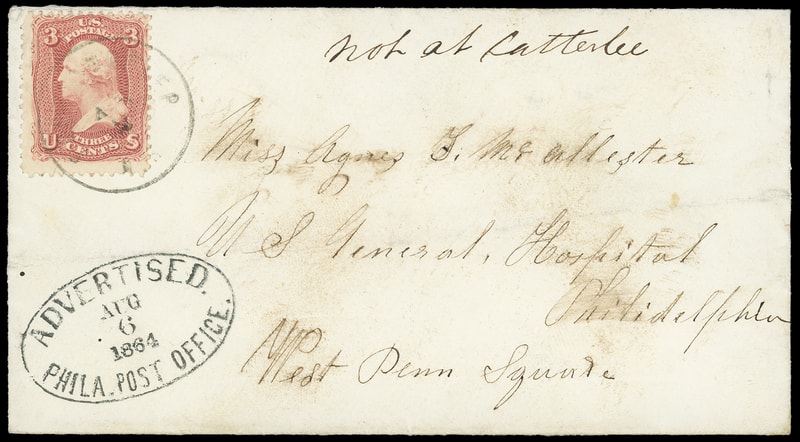 not at Satterlee
U.S. POSTAGE
3 3
THREE
CENTS
U S
Miss Agnes J. McAllester
U S General, Hospital
Philidelphia
West Penn Square
ADVERTISED.
AUG
6
1864
PHILA. POST OFFICE.